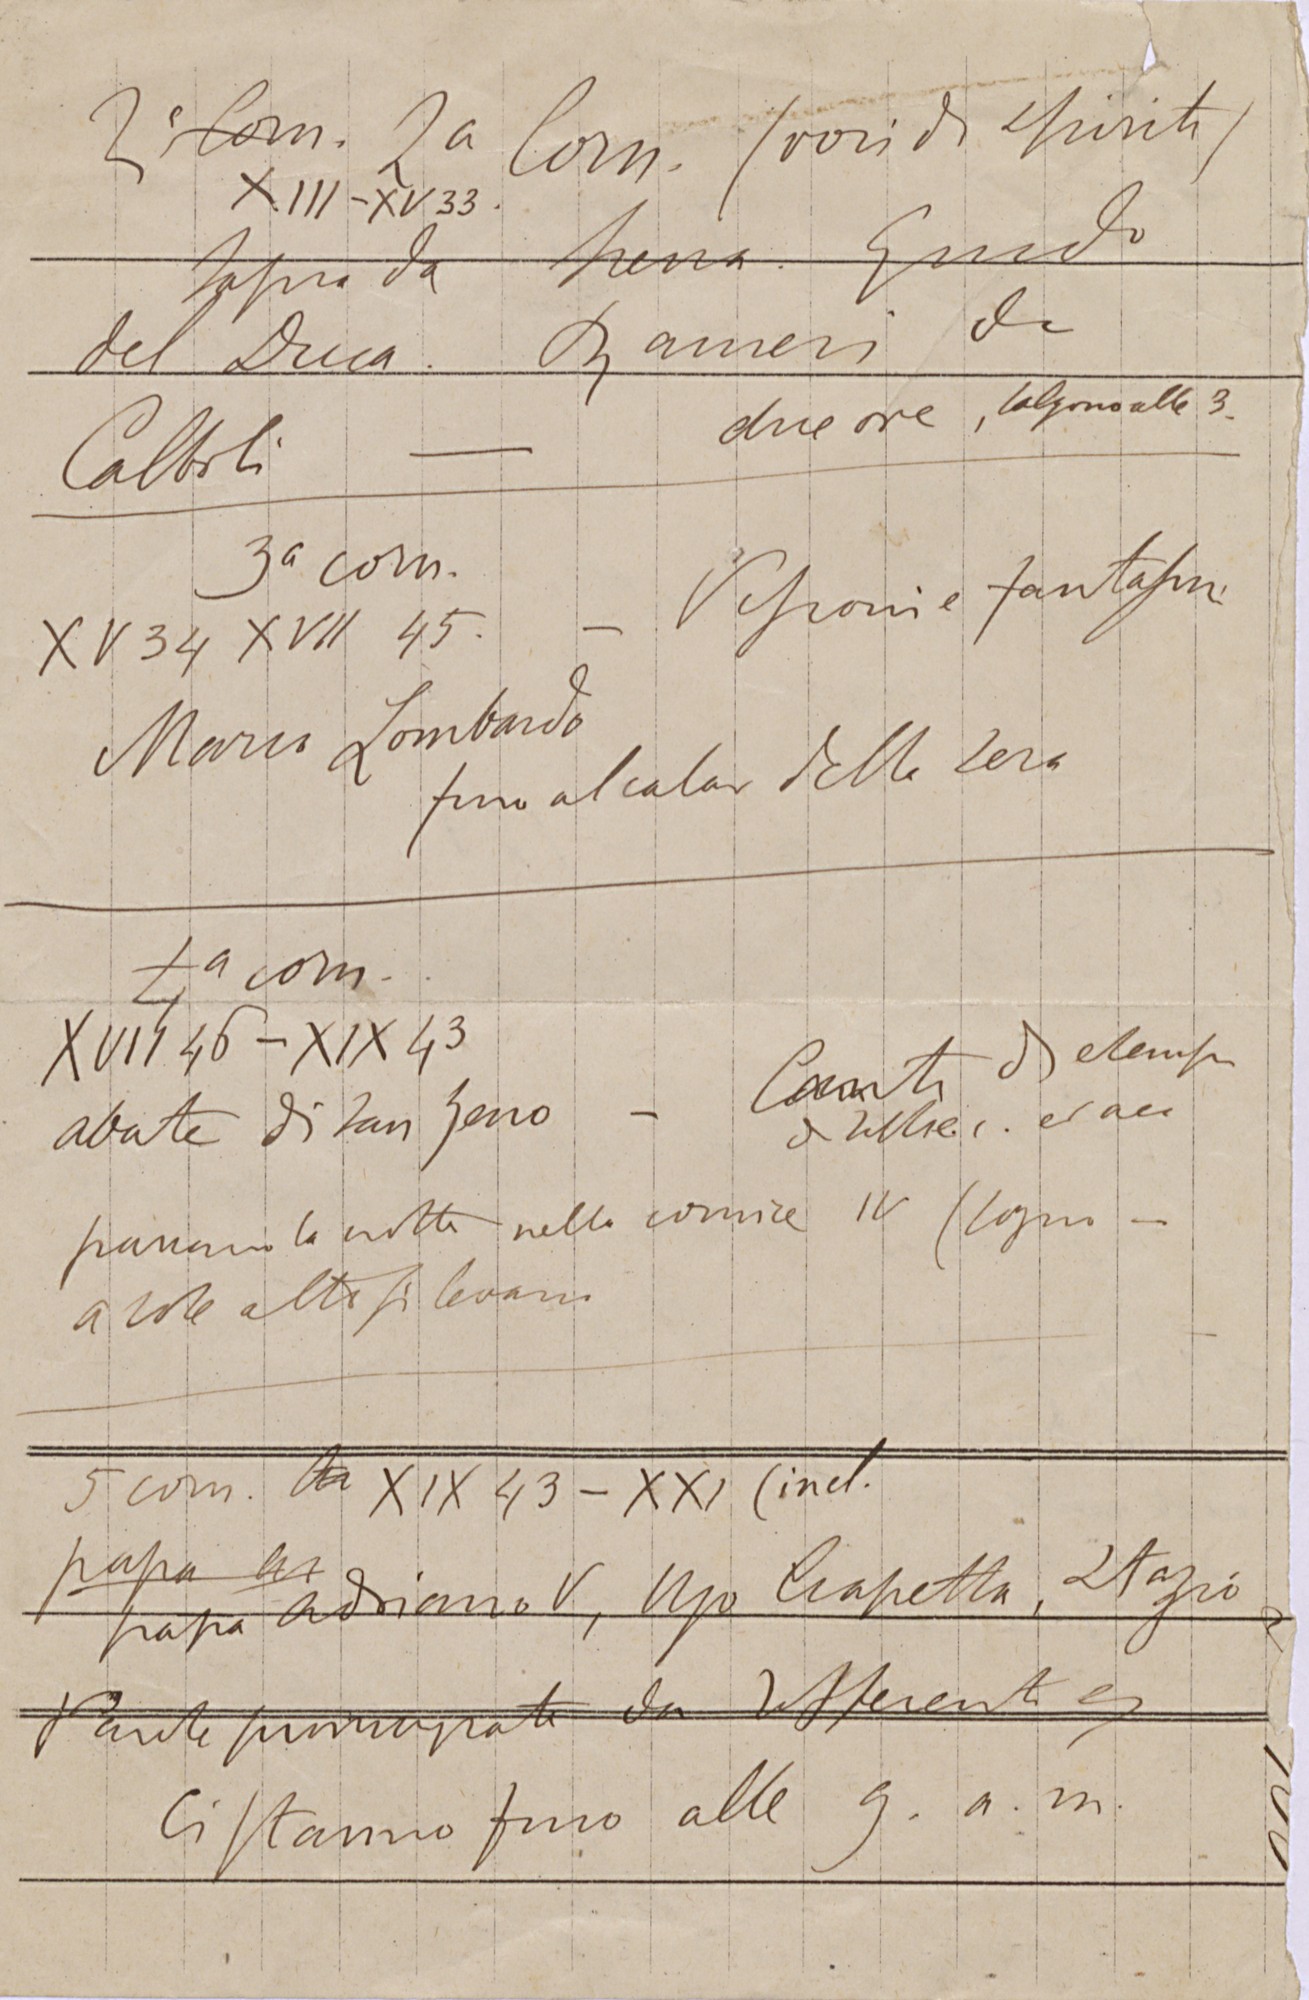 2ª Corn. 2a Corn. (voci di spiriti)
XIII-XV 33.
Sapia da Siena. Guido
del Duca. Ranieri da
Calboli — due ore, salgono alle 3.
3ª corn.
XV 34 XVII 45. — Visioni e fantasmi
Marco Lombardo
fino al calar della sera
4ª corn.
XVII 46 - XIX 43
abate di San Zeno — Canti di esempi
passano la notte nella cornice IV (sogno —
a sole alto si levano
5 corn. XIX 43 - XXI (incl.
papa
papa Adriano V, Ugo Ciapetta, Stazio
Parole pronunziate da
Ci stanno fino alle 9. a. m.